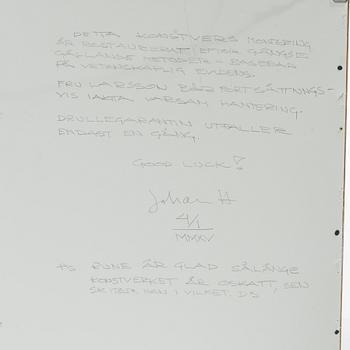 DETTA KONSTVERKS MONTERING
ÄR RESTAURERAT EFTER GÄNGSE
GÄLLANDE METODER - BASERAD
PÅ VETENSKAPLIG EVIDENS.
FRU LARSSON BÖR FORTSÄTTNINGS-
VIS IAKTA VARSAM HANTERING.
DRULLEGARANTIN UTFALLER
ENDAST EN GÅNG.
GOOD LUCK!
Johan H
4/1
MMXV
PS RUNE ÄR GLAD SÅLÄNGE
KONSTVERKET ÄR OSKATT, SEN
SKITER HAN I VILKET. DS